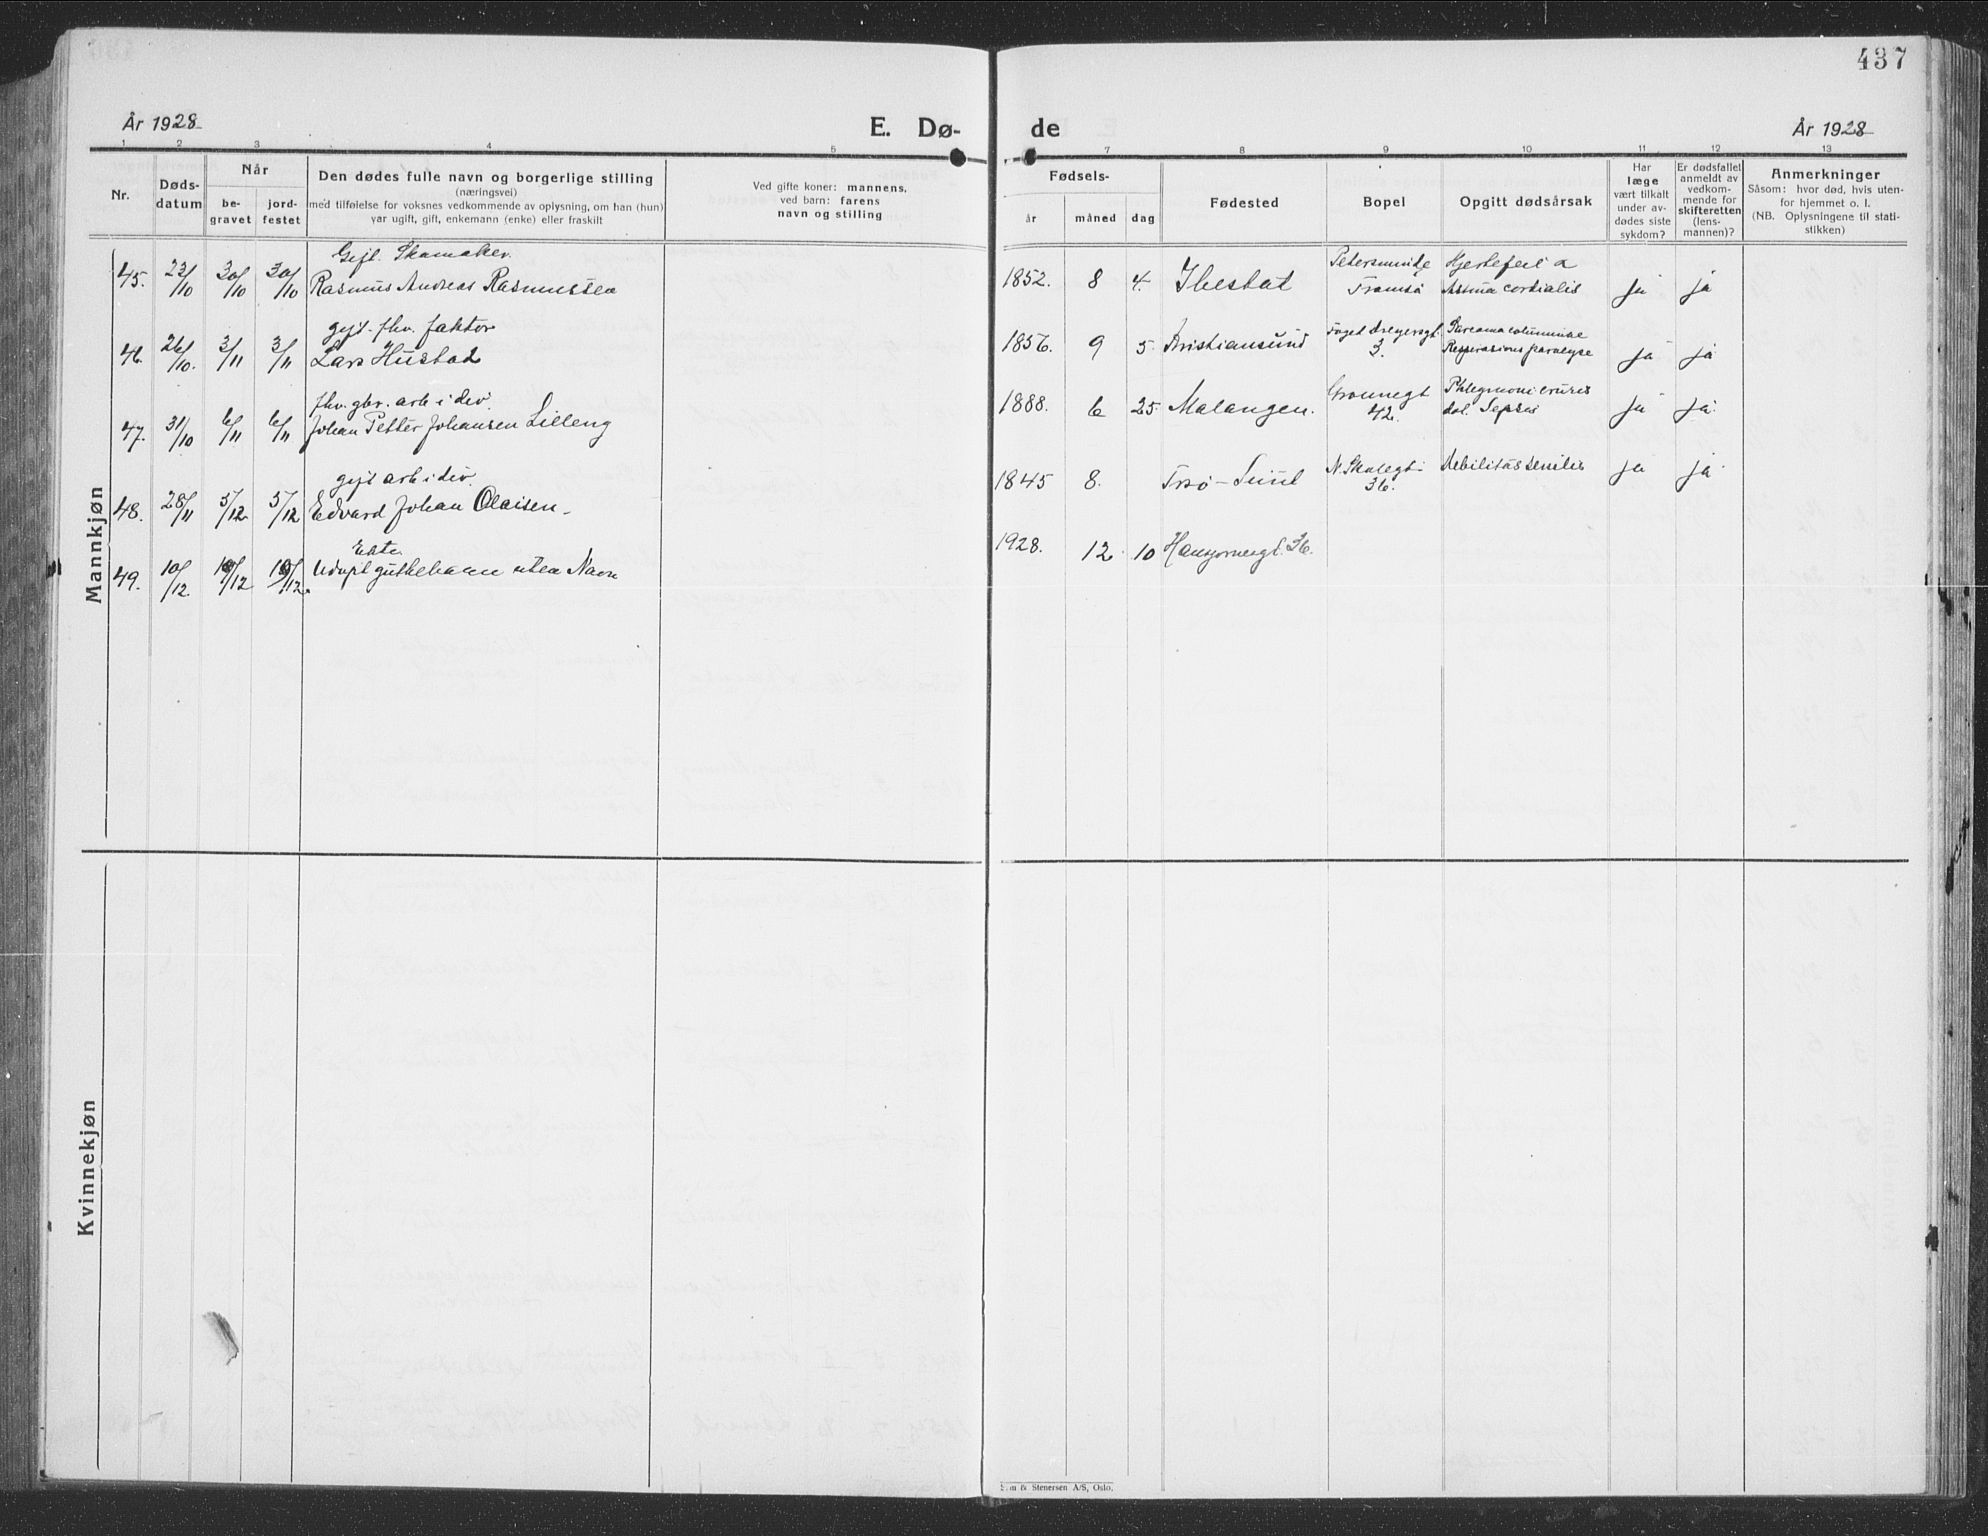 437
År 1928
E. Dø-
de
År 1928
1 2 3 4 5
7 8 9 10 11 12 13
Nr.
Døds-
datum
Når
be-
gravet
jord-
festet
Den dødes fulle navn og borgerlige stilling
(næringsvei)
med tilføielse for voksnes vedkommende av oplysning, om han (hun)
var ugift, gift, enkemann (enke) eller fraskilt
Ved gifte koner: mannens,
ved barn: farens
navn og stilling
Fødsels-
år
måned
dag
Fødested
Bopel
Opgitt dødsårsak
Har
læge
vært tilkalt
under av-
dødes siste
sykdom?
Er dødsfallet
anmeldt av
vedkom-
mende for
skifteretten
(lens-
mannen)?
Anmerkninger
Såsom: hvor død, hvis uten-
for hjemmet o. l.
(NB. Oplysningene til stati-
stikken)
Mannkjøn
Gift. Skomaker.
45. 23/10 30/10 30/10 Rasmus Andreas Rasmussen
1852. 8 4. Ibestat
Petersminde
Tromsø
Hjertefeil &
Astma cordialis
ja ja
gift. fhv. faktor
46. 26/10. 3/11 3/11 Lars Hustad
1856. 9 5. Kristiansund
Foged Dreyersgt.
3.
Respirasjonsparalyse
ja ja
fhv. gbr. arb i div.
47. 31/10 6/11 6/11 Johan Petter Johansen Lilleng
1888. 6 25. Malangen.
Grønnegt
42.
Phlegmoni cruris
Sepsis
ja ja.
gift arb i div.
48. 28/11 5/12 5/12 Edvard Johan Olaisen
1845 8. Tr.sø-Sund
N. Skolegt.
36.
Debilitas senilis
ja ja
Ekte.
49. 10/12 10/12 10/12. Udøpt guttebarn uten Navn
1928. 12 10 Hansjordnesgt. 36.
Kvinnekjøn
& Stenersen A/S, Oslo.